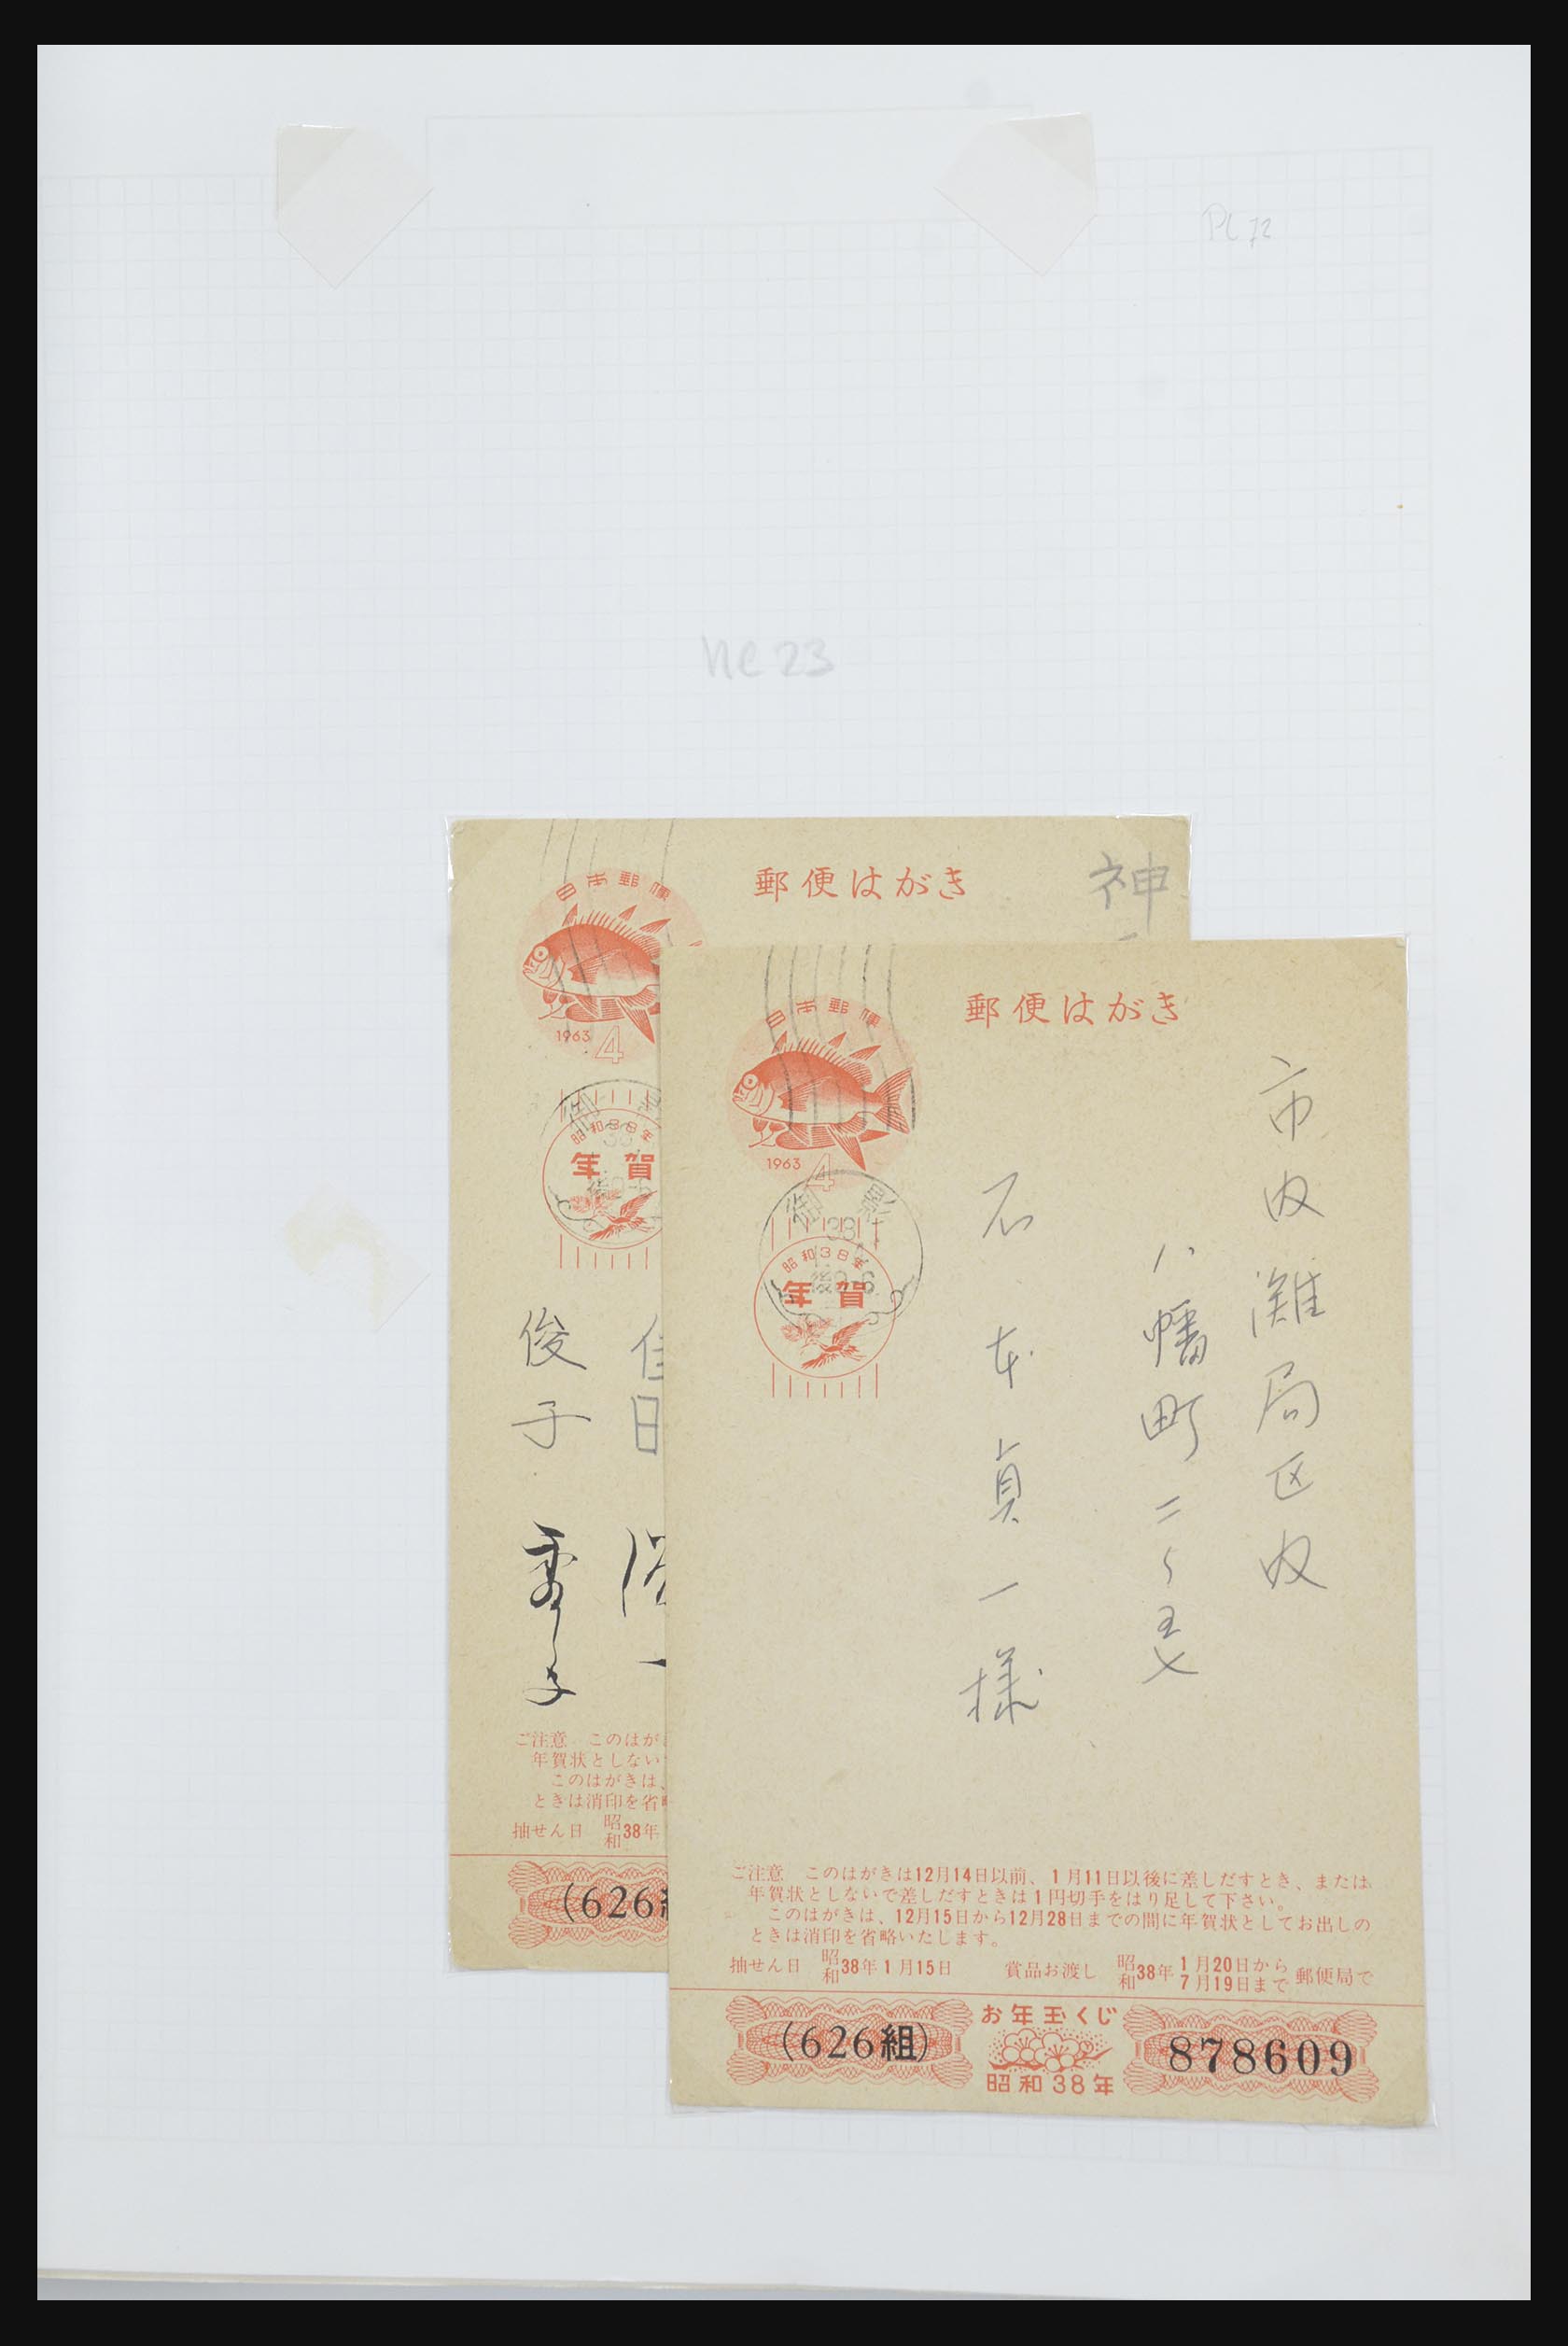 PC 72
NC 23
郵便はがき
神
日本郵便
1963
4
昭和38年
年賀
俊子
ご注意 このはが
年賀状としない
このはがきは、
ときは消印を省
抽せん日 昭和38年
(626組
郵便はがき
日本郵便
1963
4
38
後0-6
昭和38年
年賀
市内灘局区内
八幡町二ノ五七
石本貞一様
ご注意 このはがきは12月14日以前、1月11日以後に差しだすとき、または
年賀状としないで差しだすときは1円切手をはり足して下さい。
このはがきは、12月15日から12月28日までの間に年賀状としてお出しの
ときは消印を省略いたします。
抽せん日 昭和38年1月15日 賞品お渡し 昭和38年1月20日から7月19日まで郵便局で
(626組)
お年玉くじ
昭和38年
878609